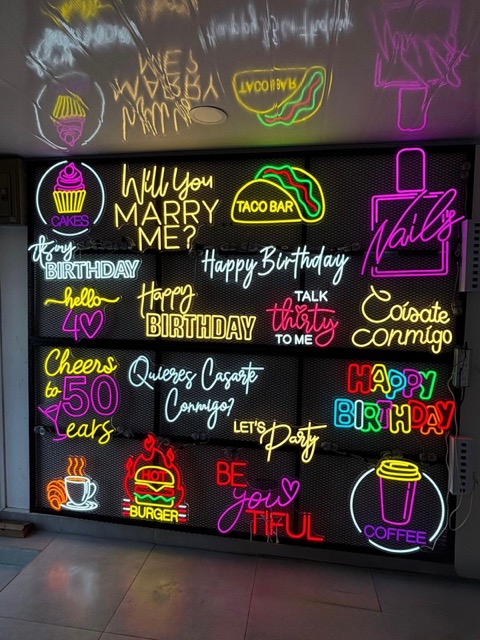 CAKES
Will You
MARRY
ME?
TACO BAR
Nails
It's my
BIRTHDAY
Happy Birthday
hello
40
Happy
BIRTHDAY
TALK
thirty
TO ME
Cásate
conmigo
Cheers
to 50
Years
Quieres Casarte
Conmigo?
LET'S
Party
HAPPY
BIRTHDAY
HOT
BURGER
BE
you
TIFUL
COFFEE